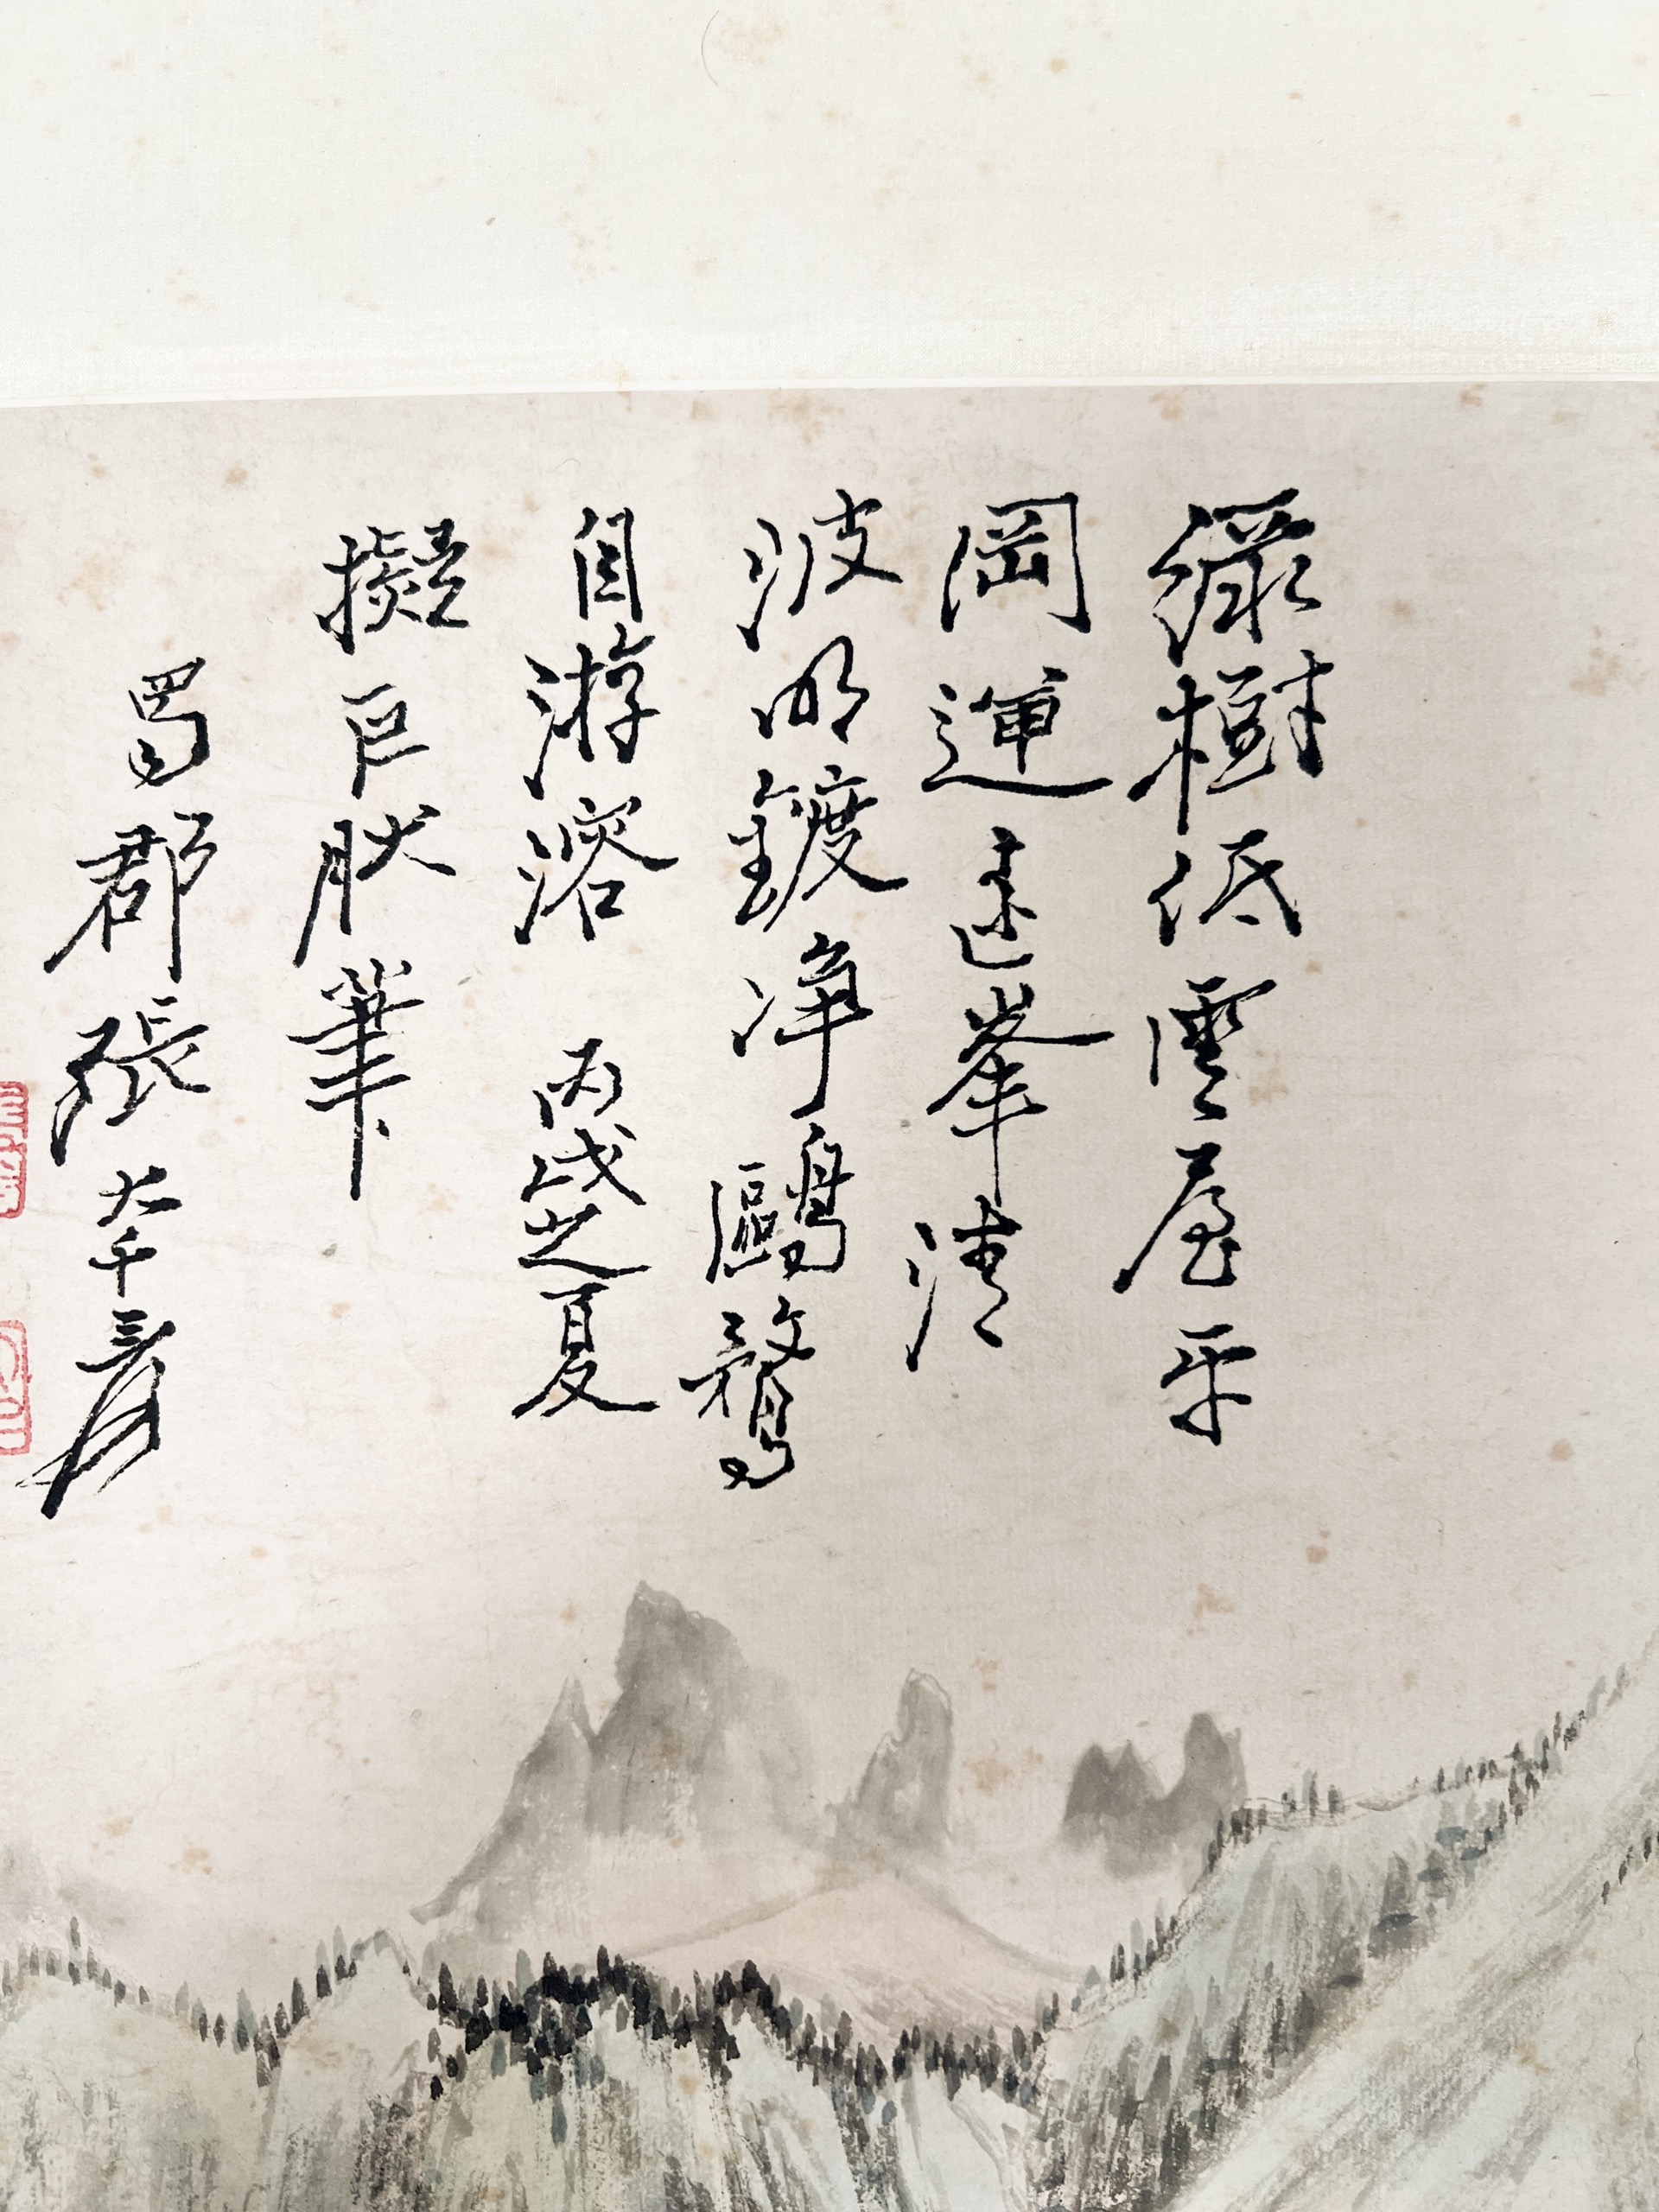 緑樹低雲屋平
岡連遠峯清
波明鍍淨鷗鶩
自游溶 丙戌之夏
擬巨肰筆
蜀郡張大千爰